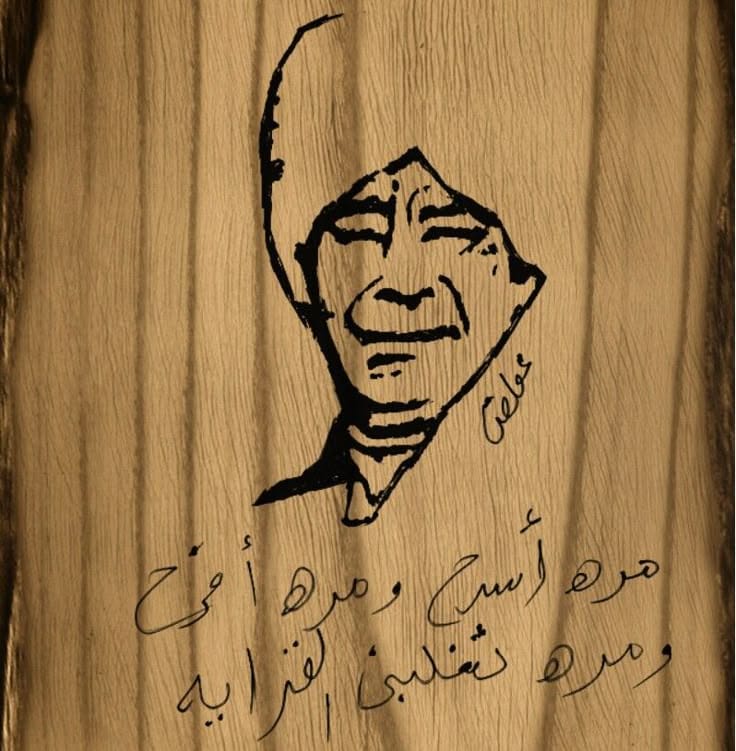 مره أسرح ومره أفرح
ومره تغلبني القرايه